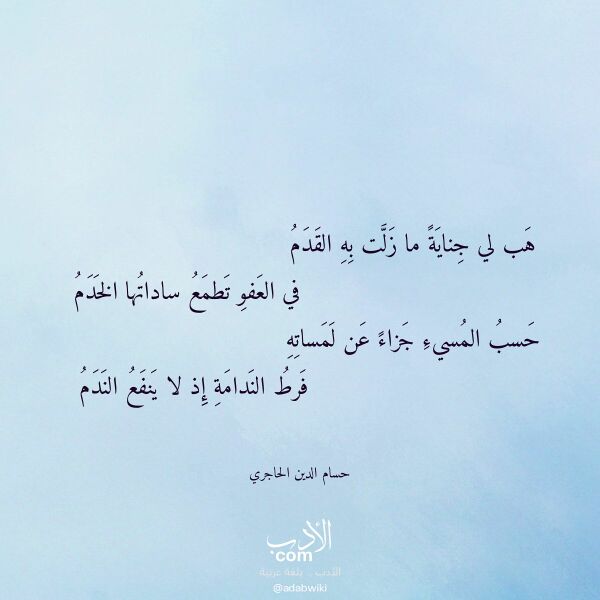 هَب لي جِنايَةً ما زَلَّت بِهِ القَدَمُ
في العَفوِ تَطمَعُ ساداتُها الخَدَمُ
حَسبُ المُسيءِ جَزاءً عَن لَمَساتِهِ
فَرطُ النَدامَةِ إِذ لا يَنفَعُ النَدَمُ
حسام الدين الحاجري
الأدب
com
الأدب .. بلغة عربية
@adabwiki